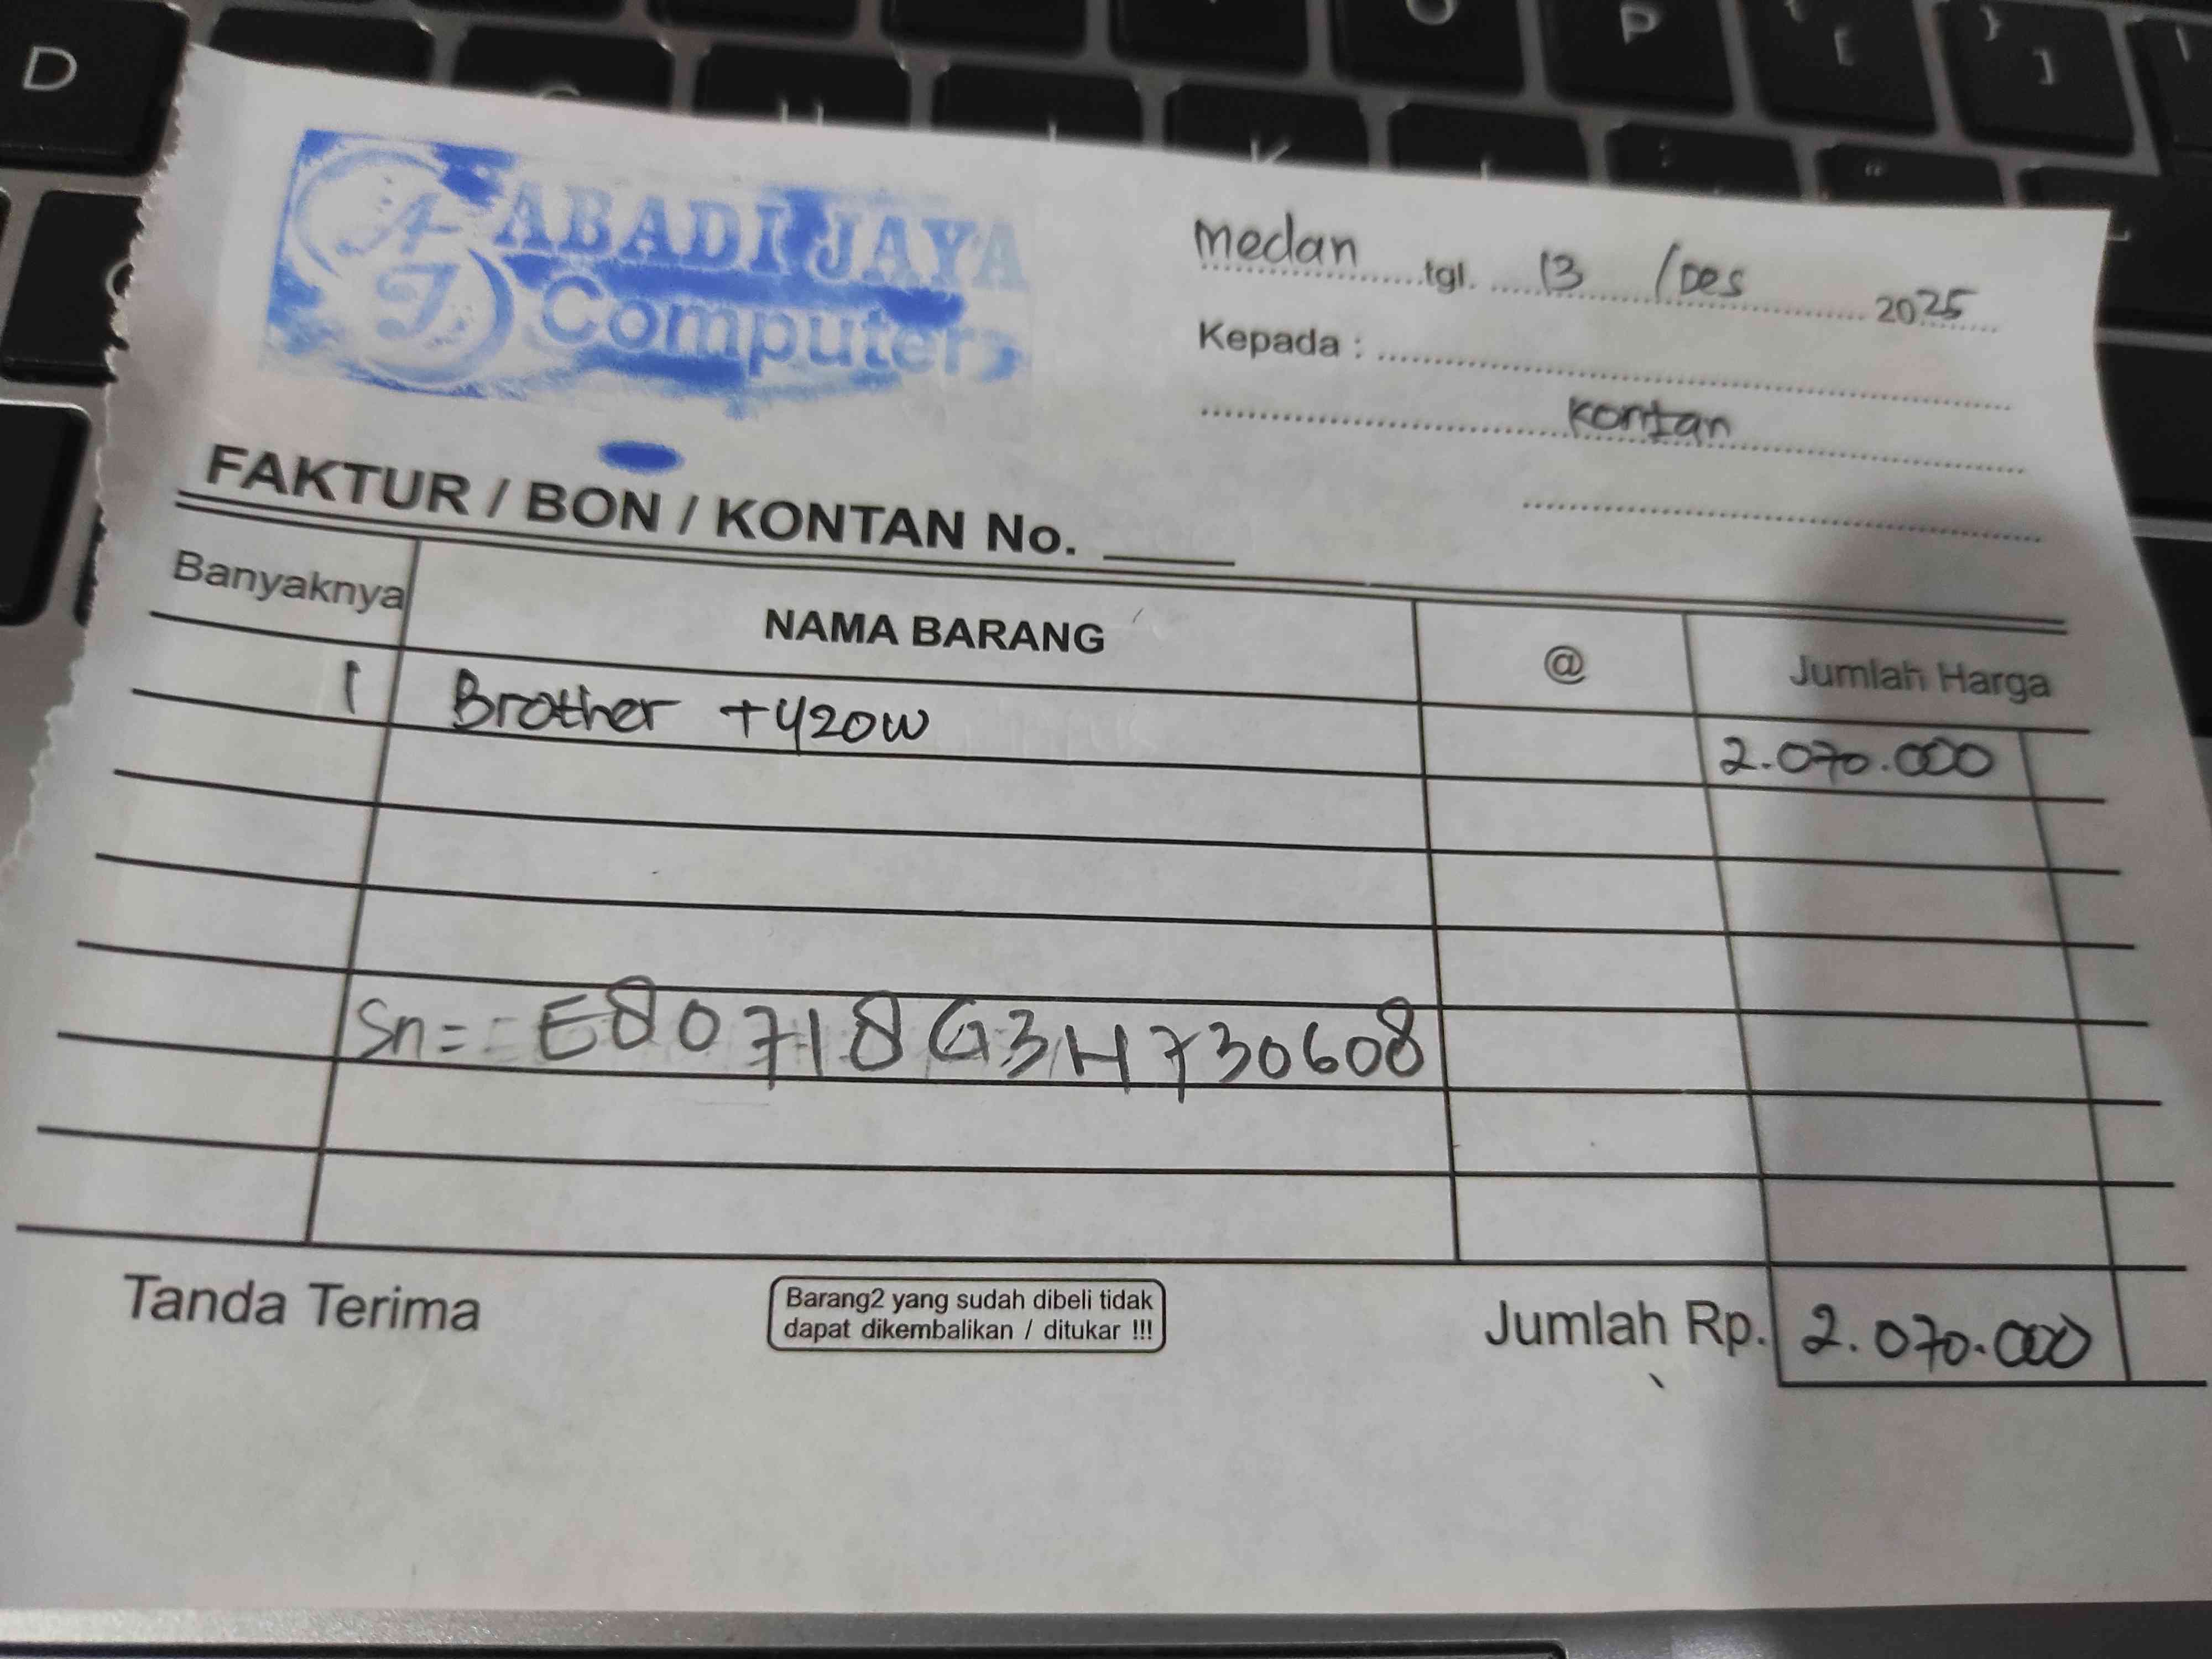 ABADI JAYA
AJ Computer
Medan tgl. 13 / Des 2025
Kepada :
Kontan
FAKTUR / BON / KONTAN No.
Banyaknya NAMA BARANG @ Jumlah Harga
1 Brother T420W 2.070.000
Sn= E80718G3H730608
Tanda Terima
Barang2 yang sudah dibeli tidak
dapat dikembalikan / ditukar !!!
Jumlah Rp. 2.070.000
D
O
P
{
[
}
]
K
L
:
"